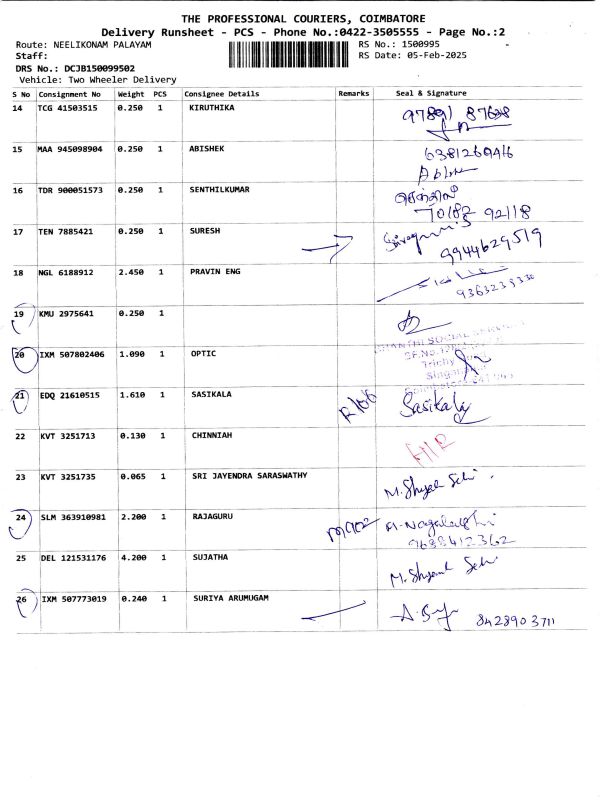 THE PROFESSIONAL COURIERS, COIMBATORE
Delivery Runsheet - PCS - Phone No.:0422-3505555 - Page No.:2
Route: NEELIKONAM PALAYAM RS No.: 1500995
Staff: RS Date: 05-Feb-2025
DRS No.: DCJB150099502
Vehicle: Two Wheeler Delivery
S No Consignment No Weight PCS Consignee Details Remarks Seal & Signature
14 TCG 41503515 0.250 1 KIRUTHIKA 97891 87628
15 MAA 945098904 0.250 1 ABISHEK 6381260416
16 TDR 900051573 0.250 1 SENTHILKUMAR
70182 92118
17 TEN 7885421 0.250 1 SURESH 9944629519
18 NGL 6188912 2.450 1 PRAVIN ENG
9363233330
19 KMU 2975641 0.250 1
20 IXM 507802406 1.090 1 OPTIC
21 EDQ 21610515 1.610 1 SASIKALA Sasikala
22 KVT 3251713 0.130 1 CHINNIAH
23 KVT 3251735 0.065 1 SRI JAYENDRA SARASWATHY
24 SLM 363910981 2.200 1 RAJAGURU
9688412362
25 DEL 121531176 4.200 1 SUJATHA
26 IXM 507773019 0.240 1 SURIYA ARUMUGAM 8428903711